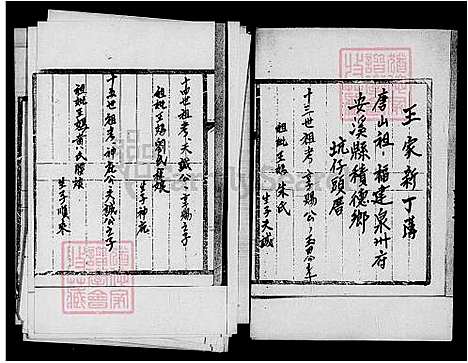 王家新丁簿
唐山祖,福建泉州府
安溪縣積德鄉
坑仔頭厝
十三世祖考 賜公
祖妣王媽朱氏
生子天誠
十四世祖考,天誠公 賜之子
祖妣王媽劉氏
生子神庇
十五世祖考,神庇公天誠之子
祖妣王媽黃氏 娘
生子順來